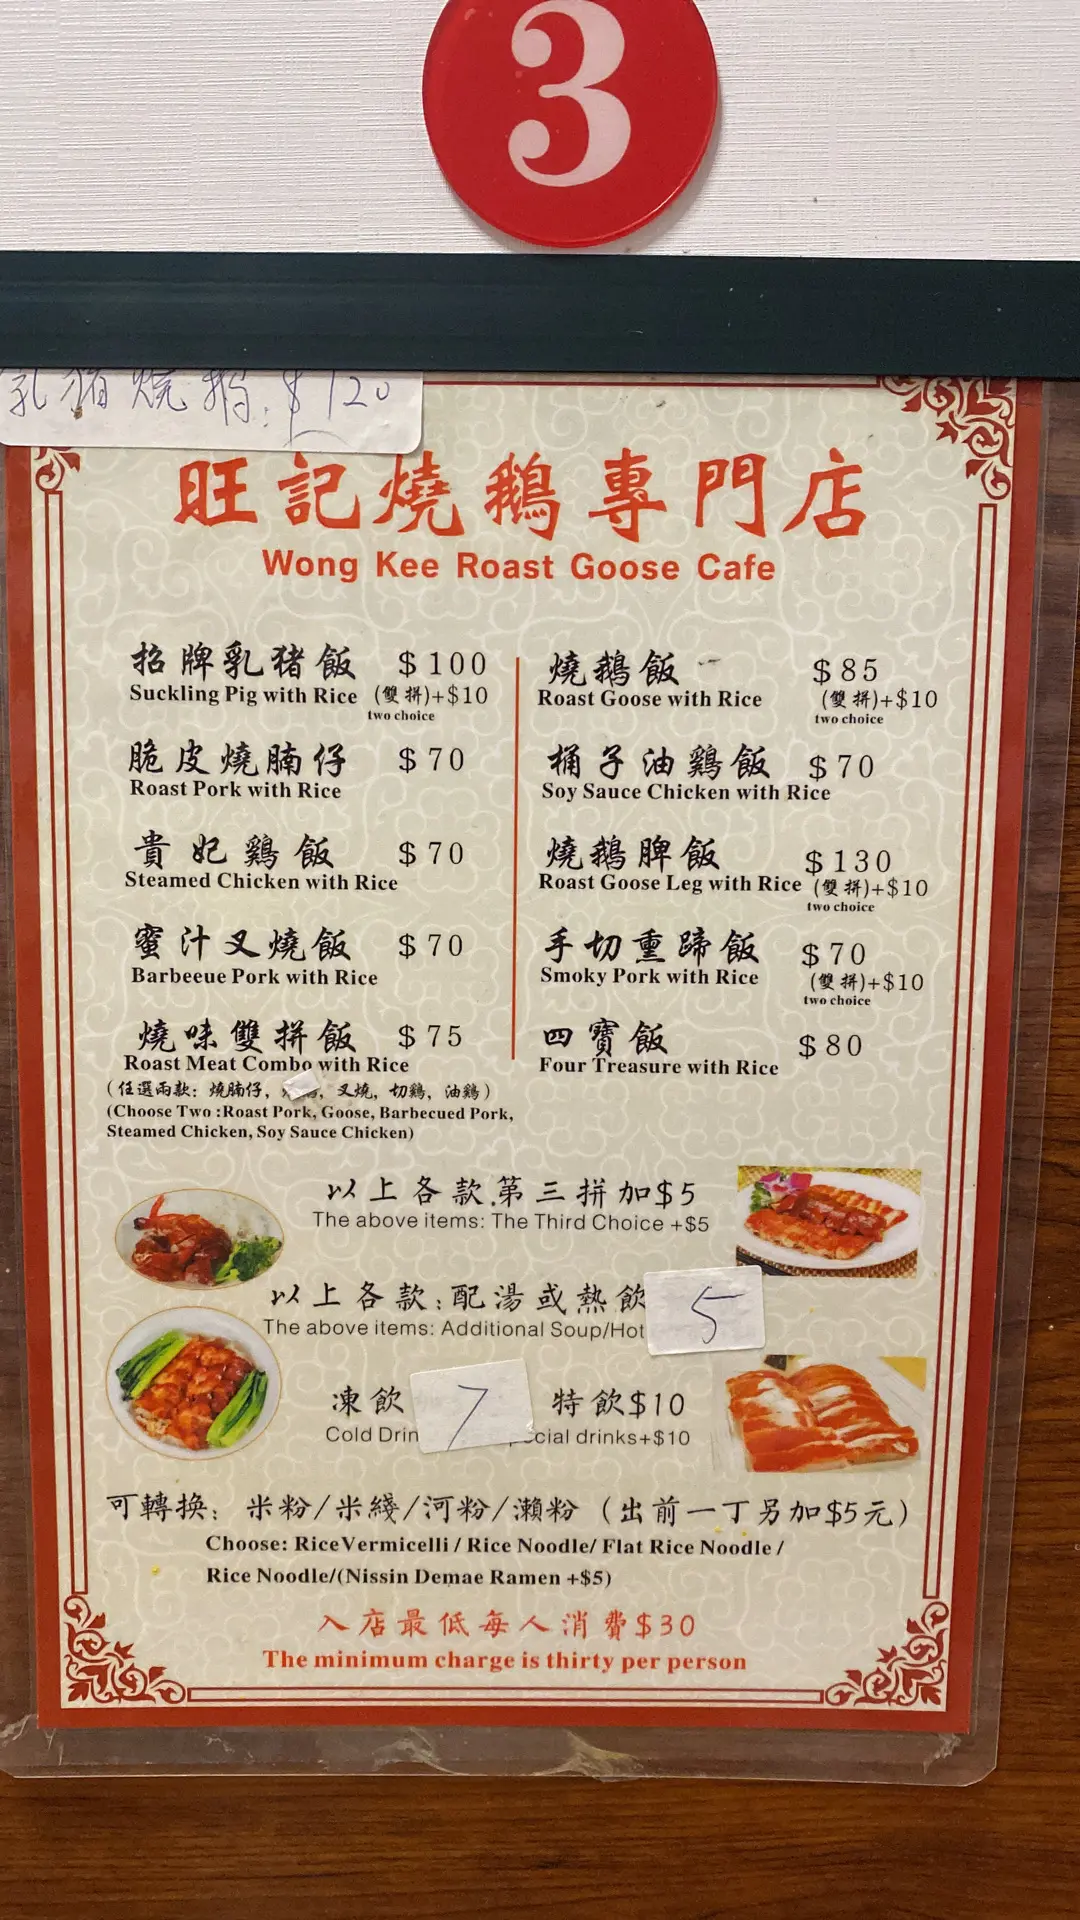 3
乳猪燒鵝:$120
旺記燒鵝專門店
Wong Kee Roast Goose Cafe
招牌乳猪飯 $100
Suckling Pig with Rice (雙拼)+$10
two choice
脆皮燒腩仔 $70
Roast Pork with Rice
貴妃鷄飯 $70
Steamed Chicken with Rice
蜜汁叉燒飯 $70
Barbeeue Pork with Rice
燒味雙拼飯 $75
Roast Meat Combo with Rice
(任選兩款: 燒腩仔, 叉燒, 切鷄, 油鷄)
(Choose Two :Roast Pork, Goose, Barbecued Pork,
Steamed Chicken, Soy Sauce Chicken)
燒鵝飯 $85
Roast Goose with Rice (雙拼)+$10
two choice
桶子油鷄飯 $70
Soy Sauce Chicken with Rice
燒鵝脾飯 $130
Roast Goose Leg with Rice (雙拼)+$10
two choice
手切熏蹄飯 $70
Smoky Pork with Rice (雙拼)+$10
two choice
四寶飯 $80
Four Treasure with Rice
以上各款.第三拼加$5
The above items: The Third Choice +$5
以上各款:配湯或熱飲 5
The above items: Additional Soup/Hot
凍飲 7 特飲$10
Cold Drin cial drinks+$10
可轉換: 米粉/米綫/河粉/瀨粉 (出前一丁另加$5元)
Choose: RiceVermicelli / Rice Noodle/ Flat Rice Noodle /
Rice Noodle/(Nissin Demae Ramen +$5)
入店最低每人消費$30
The minimum charge is thirty per person